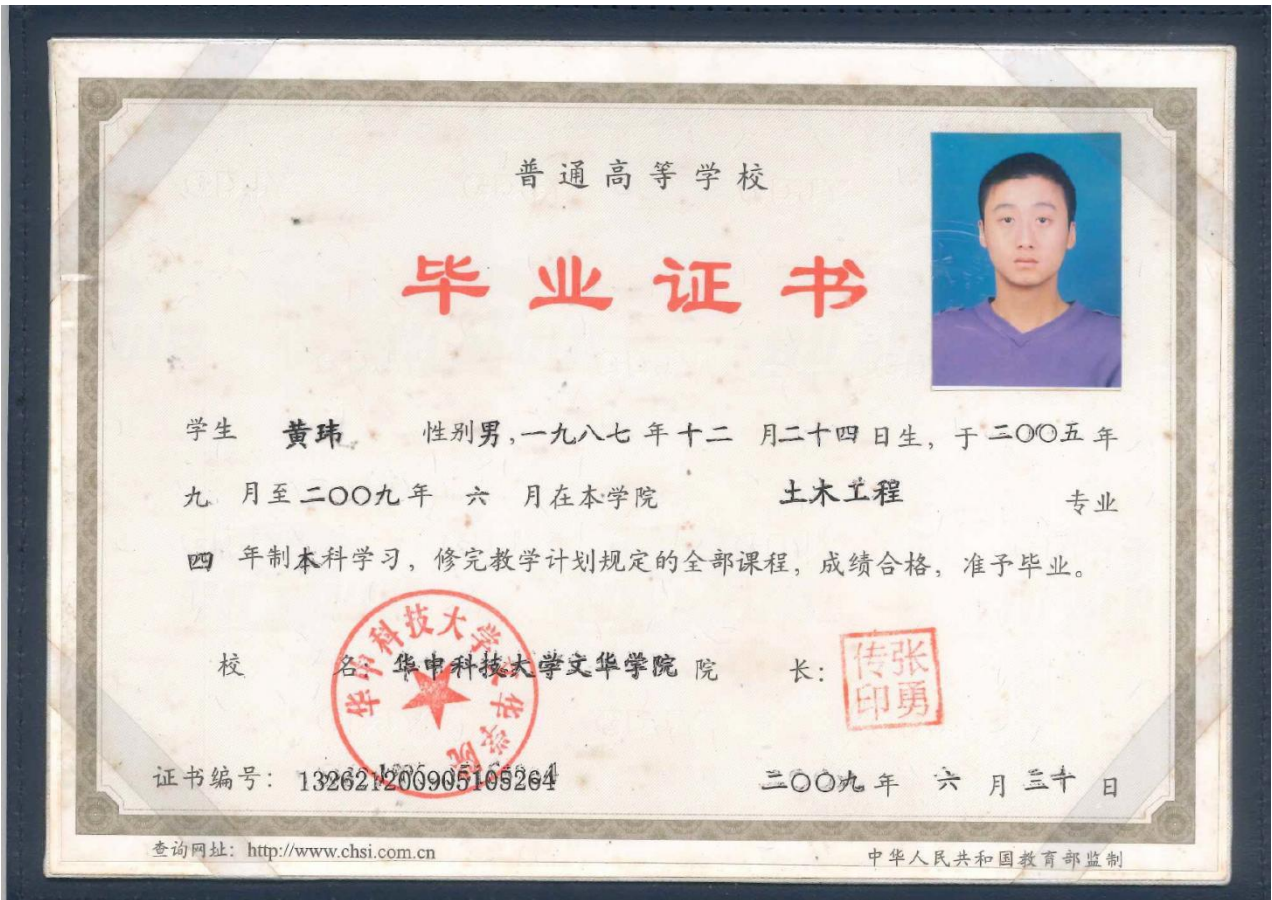 普通高等学校
毕业证书
学生 黄玮 性别男,一九八七年十二月二十四日生，于二〇〇五年
九月至二〇〇九年六月在本学院 土木工程 专业
四年制本科学习，修完教学计划规定的全部课程，成绩合格，准予毕业。
校 名：华中科技大学文华学院 院 长：
华中科技大学文华学院
张勇传印
证书编号：132621200905105264 二〇〇九年六月三十日
查询网址：http://www.chsi.com.cn 中华人民共和国教育部监制